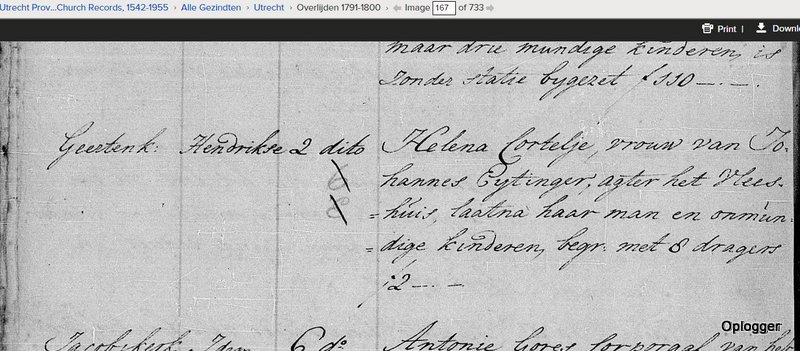 Utrecht Prov...Church Records, 1542-1955 › Alle Gezindten › Utrecht › Overlijden 1791-1800 › Image 167 of 733
Print | Downlo
maar drie mundige kinderen, is
zonder statie bygezet f 110 —.—.
Geertenk: Hendrikse 2 dito Helena Cortelje, vrouw van Jo-
hannes Eytinger, agter het Vlees-
=huis, laatna haar man en onmun-
=dige kinderen, begr: met 8 dragers
12 —.—
Jacobskerk Idem 6 do Antonie Gores Corporaal van het
Oplogger